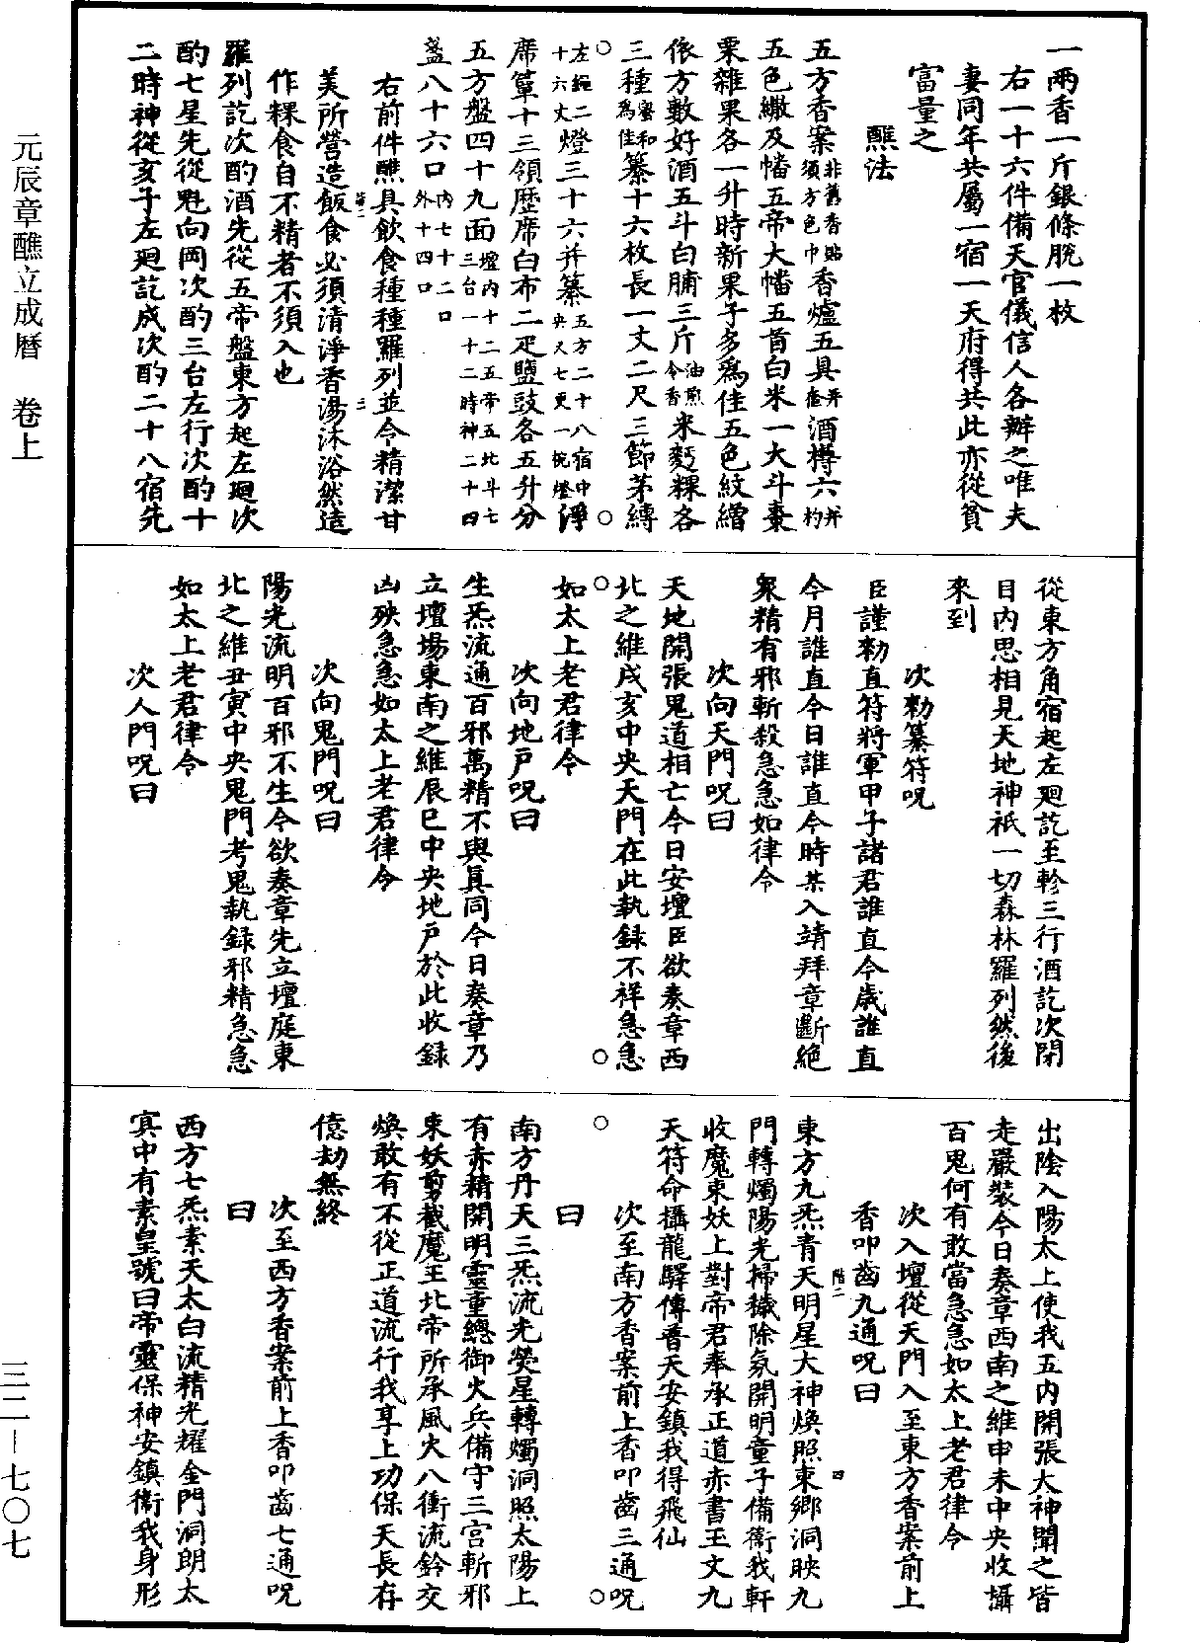 一兩香一斤銀條脫一枚
右一十六件備天官儀信人各辦之唯夫
妻同年共屬一宿一天府得共此亦從貧
富量之
醮法
五方香案非舊香貼須方色巾香爐五具并奩酒樽六并杓
五色繖及幡五帝大幡五首白米一大斗棗
栗雜果各一升時新果子多爲佳五色紋繒
依方數好酒五斗白脯三斤油煎令香米麪粿各
三種蜜和爲佳纂十六枚長一丈二尺三節茅縛
左繩二十六丈燈三十六并纂五方二十八宿中央又七更一椀燈淨
席簟十三領歷席白布二疋鹽豉各五升分
五方盤四十九面壇內十二五帝五北斗七三台一十二時神二十四
盞八十六口內七十二口外十四口
右前件醮具飲食種種羅列並令精潔甘
美所營造飯食必須清淨香湯沐浴然造
作粿食自不精者不須入也
羅列訖次酌酒先從五帝盤東方起左迴次
酌七星先從魁向罡次酌三台左行次酌十
二時神從亥子左迴訖成次酌二十八宿先
從東方角宿起左迴訖至軫三行酒訖次閉
目內思相見天地神祇一切森林羅列然後
來到
次勑纂符呪
臣謹勑直符將軍甲子諸君誰直今歲誰直
今月誰直今日誰直今時某入靖拜章斷絕
衆精有邪斬殺急急如律令
次向天門呪曰
天地開張鬼道相亡今日安壇臣欲奏章西
北之維戌亥中央天門在此執録不祥急急
如太上老君律令
次向地戶呪曰
生炁流通百邪萬精不與真同今日奏章乃
立壇場東南之維辰巳中央地戶於此收録
凶殃急急如太上老君律令
次向鬼門呪曰
陽光流明百邪不生今欲奏章先立壇庭東
北之維丑寅中央鬼門考鬼執録邪精急急
如太上老君律令
次人門呪曰
出陰入陽太上使我五內開張大神聞之皆
走嚴裝今日奏章西南之維申未中央收攝
百鬼何有敢當急急如太上老君律令
次入壇從天門入至東方香案前上
香叩齒九通呪曰
東方九炁青天明星大神煥照東鄉洞映九
門轉燭陽光掃穢除氛開明童子備衛我軒
收魔束妖上對帝君奉承正道赤書玉文九
天符命攝龍驛傳普天安鎮我得飛仙
次至南方香案前上香叩齒三通呪
曰
南方丹天三炁流光熒星轉燭洞照太陽上
有赤精開明靈童總御火兵備守三宮斬邪
束妖剪截魔王北帝所承風火八衝流鈴交
煥敢有不從正道流行我享上功保天長存
億劫無終
次至西方香案前上香叩齒七通呪
曰
西方七炁素天太白流精光耀金門洞朗太
冥中有素皇號曰帝靈保神安鎮衛我身形
元辰章醮立成曆　卷上
三二—七〇七